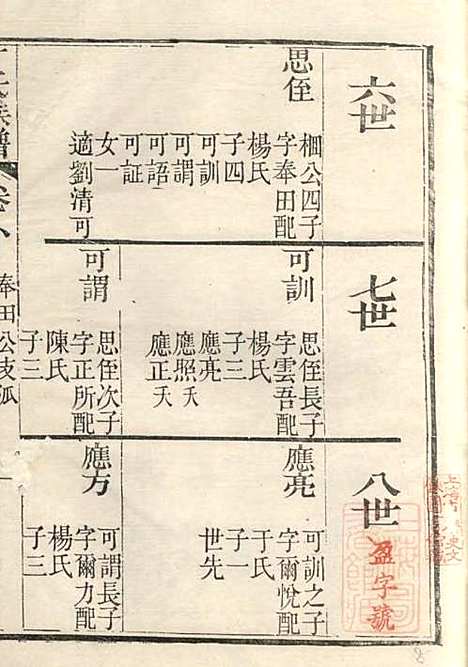 六世
思侄
棡公四子
字奉田配
楊氏
子四
可訓
可謂
可語
可証
女一
適劉清可
七世
可訓
思侄長子
字雲吾配
楊氏
子三
應亮
應照夭
應正夭
可謂
思侄次子
字正所配
陳氏
子三
八世
應亮
可訓之子
字爾悅配
于氏
子一
世先
應方
可謂長子
字爾力配
楊氏
子三
盈字號
氏族譜
卷八
奉田公支派